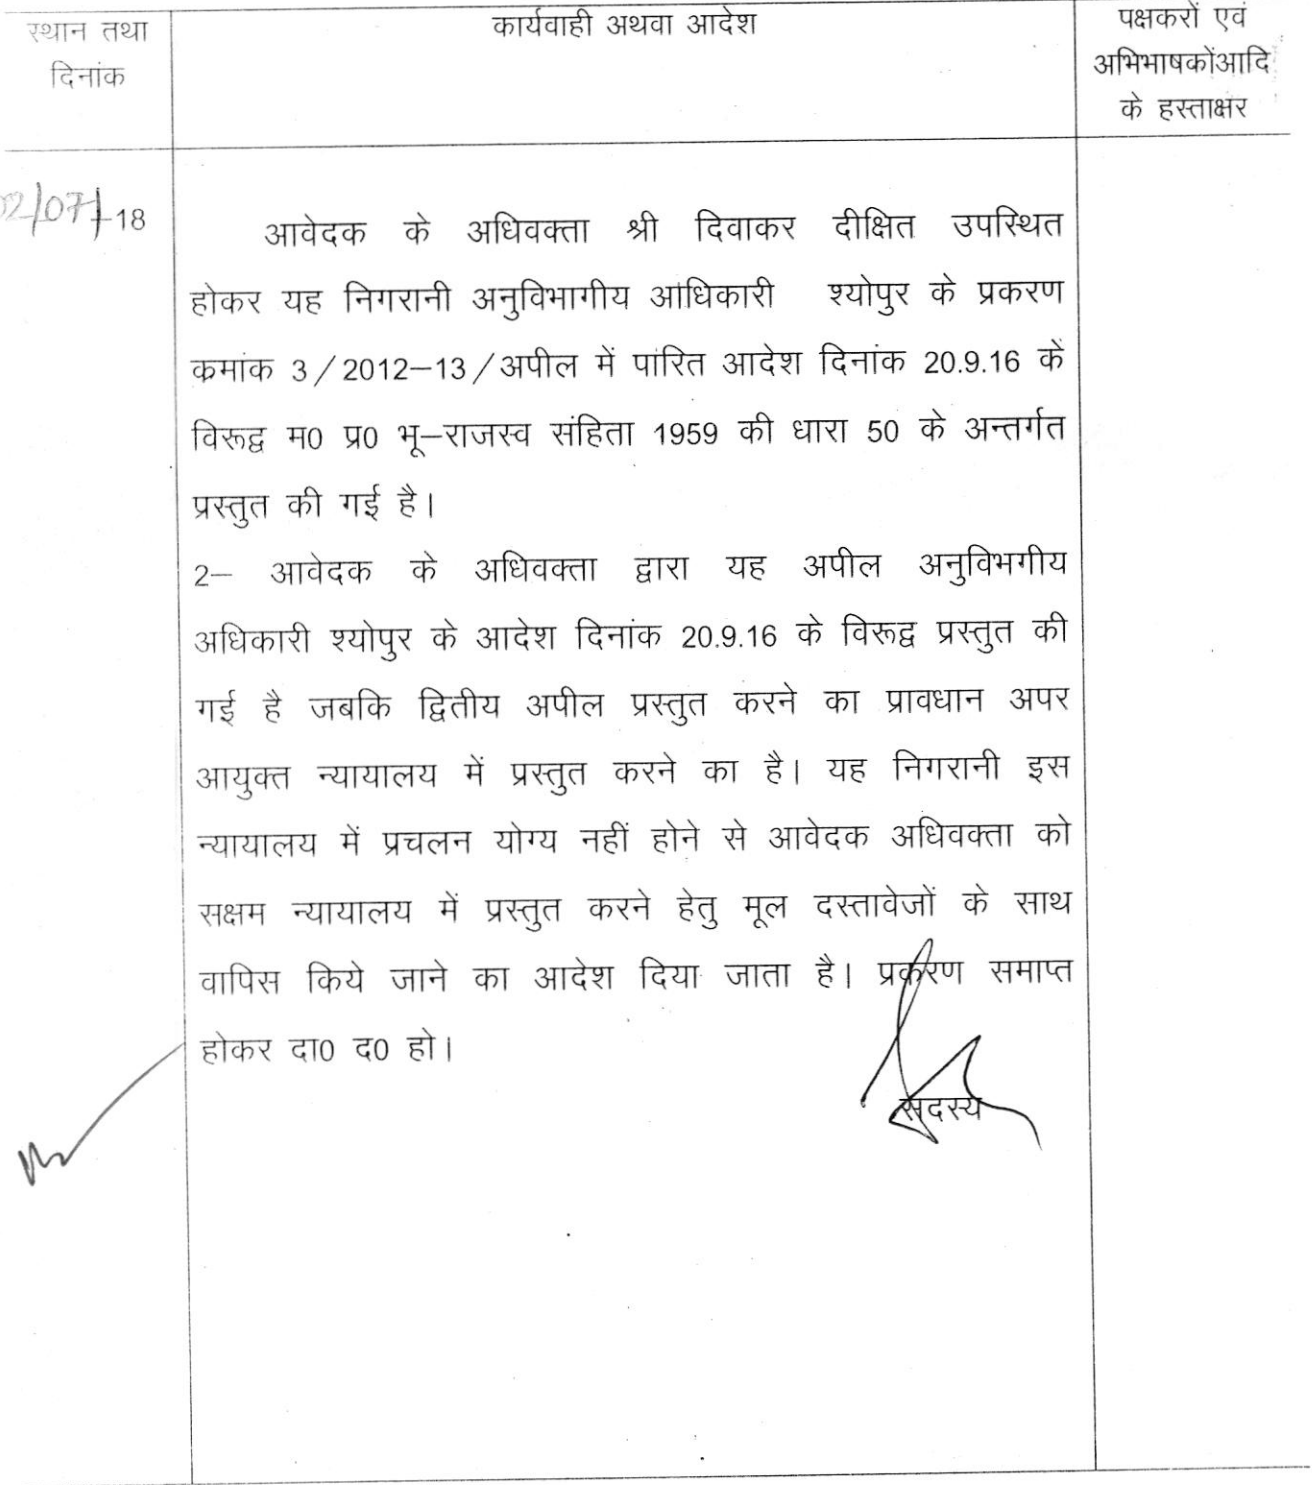 स्थान तथा
दिनांक
कार्यवाही अथवा आदेश
पक्षकरों एवं
अभिभाषकोंआदि
के हस्ताक्षर
02/07/-18
आवेदक के अधिवक्ता श्री दिवाकर दीक्षित उपस्थित
होकर यह निगरानी अनुविभागीय आधिकारी श्योपुर के प्रकरण
कमांक 3/2012-13/अपील में पारित आदेश दिनांक 20.9.16 के
विरूद्व म0 प्र0 भू-राजस्व संहिता 1959 की धारा 50 के अन्तर्गत
प्रस्तुत की गई है।
2- आवेदक के अधिवक्ता द्वारा यह अपील अनुविभगीय
अधिकारी श्योपुर के आदेश दिनांक 20.9.16 के विरूद्व प्रस्तुत की
गई है जबकि द्वितीय अपील प्रस्तुत करने का प्रावधान अपर
आयुक्त न्यायालय में प्रस्तुत करने का है। यह निगरानी इस
न्यायालय में प्रचलन योग्य नहीं होने से आवेदक अधिवक्ता को
सक्षम न्यायालय में प्रस्तुत करने हेतु मूल दस्तावेजों के साथ
वापिस किये जाने का आदेश दिया जाता है। प्रकरण समाप्त
होकर दा0 द0 हो।
सदस्य